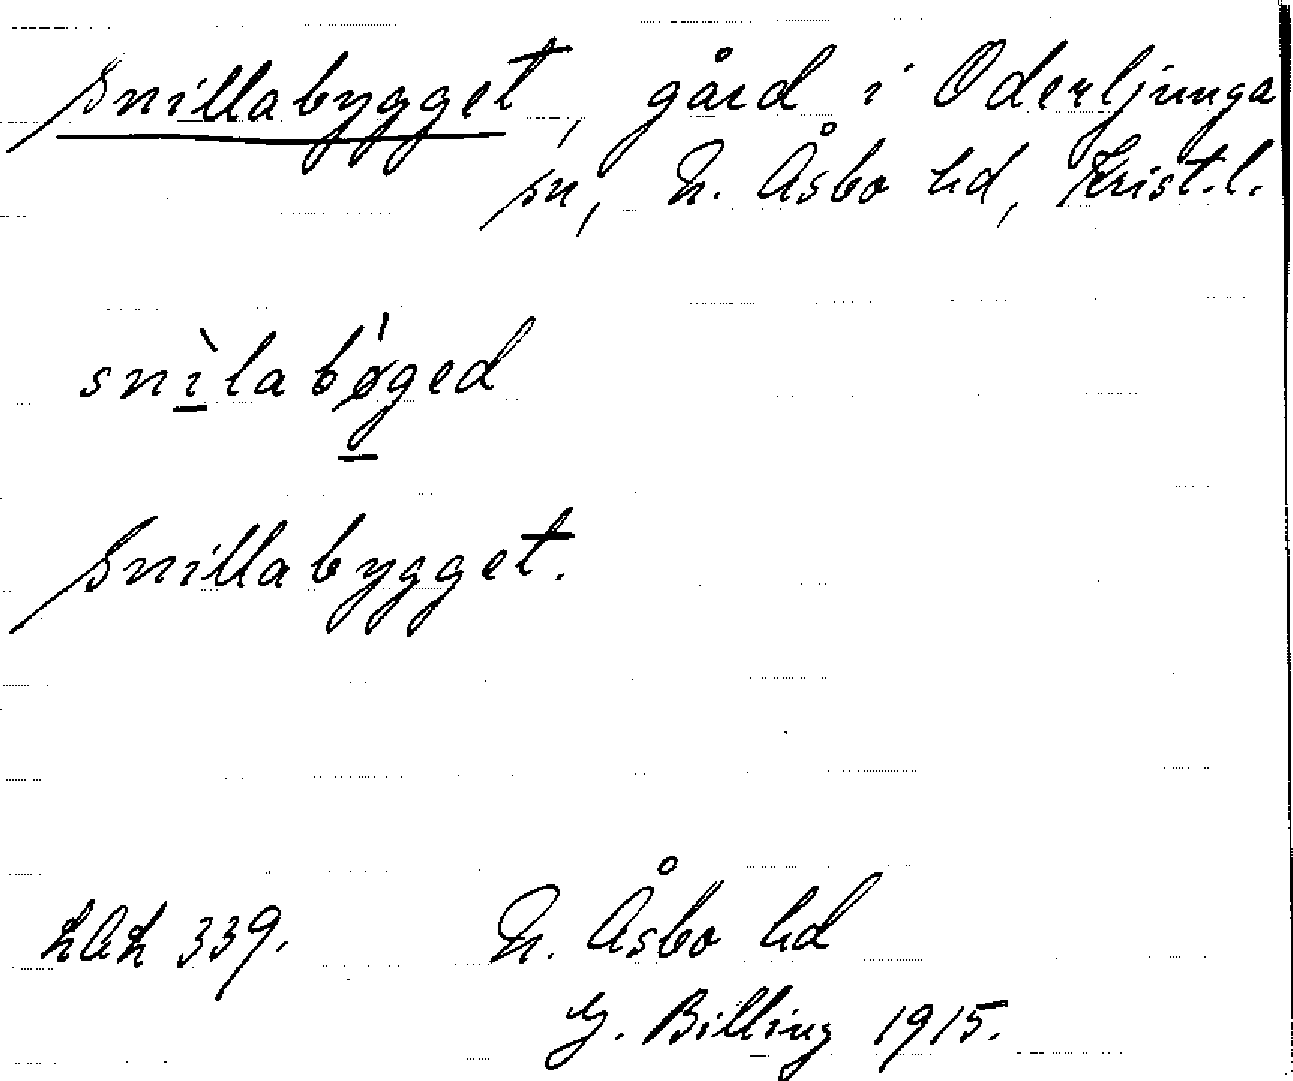 Snillabygget, gård i Oderljunga
sn, N. Åsbo hd, Krist.l.
snìlabǿged
Snillabygget.
LAL 339.
N. Åsbo hd
G. Billing 1915.